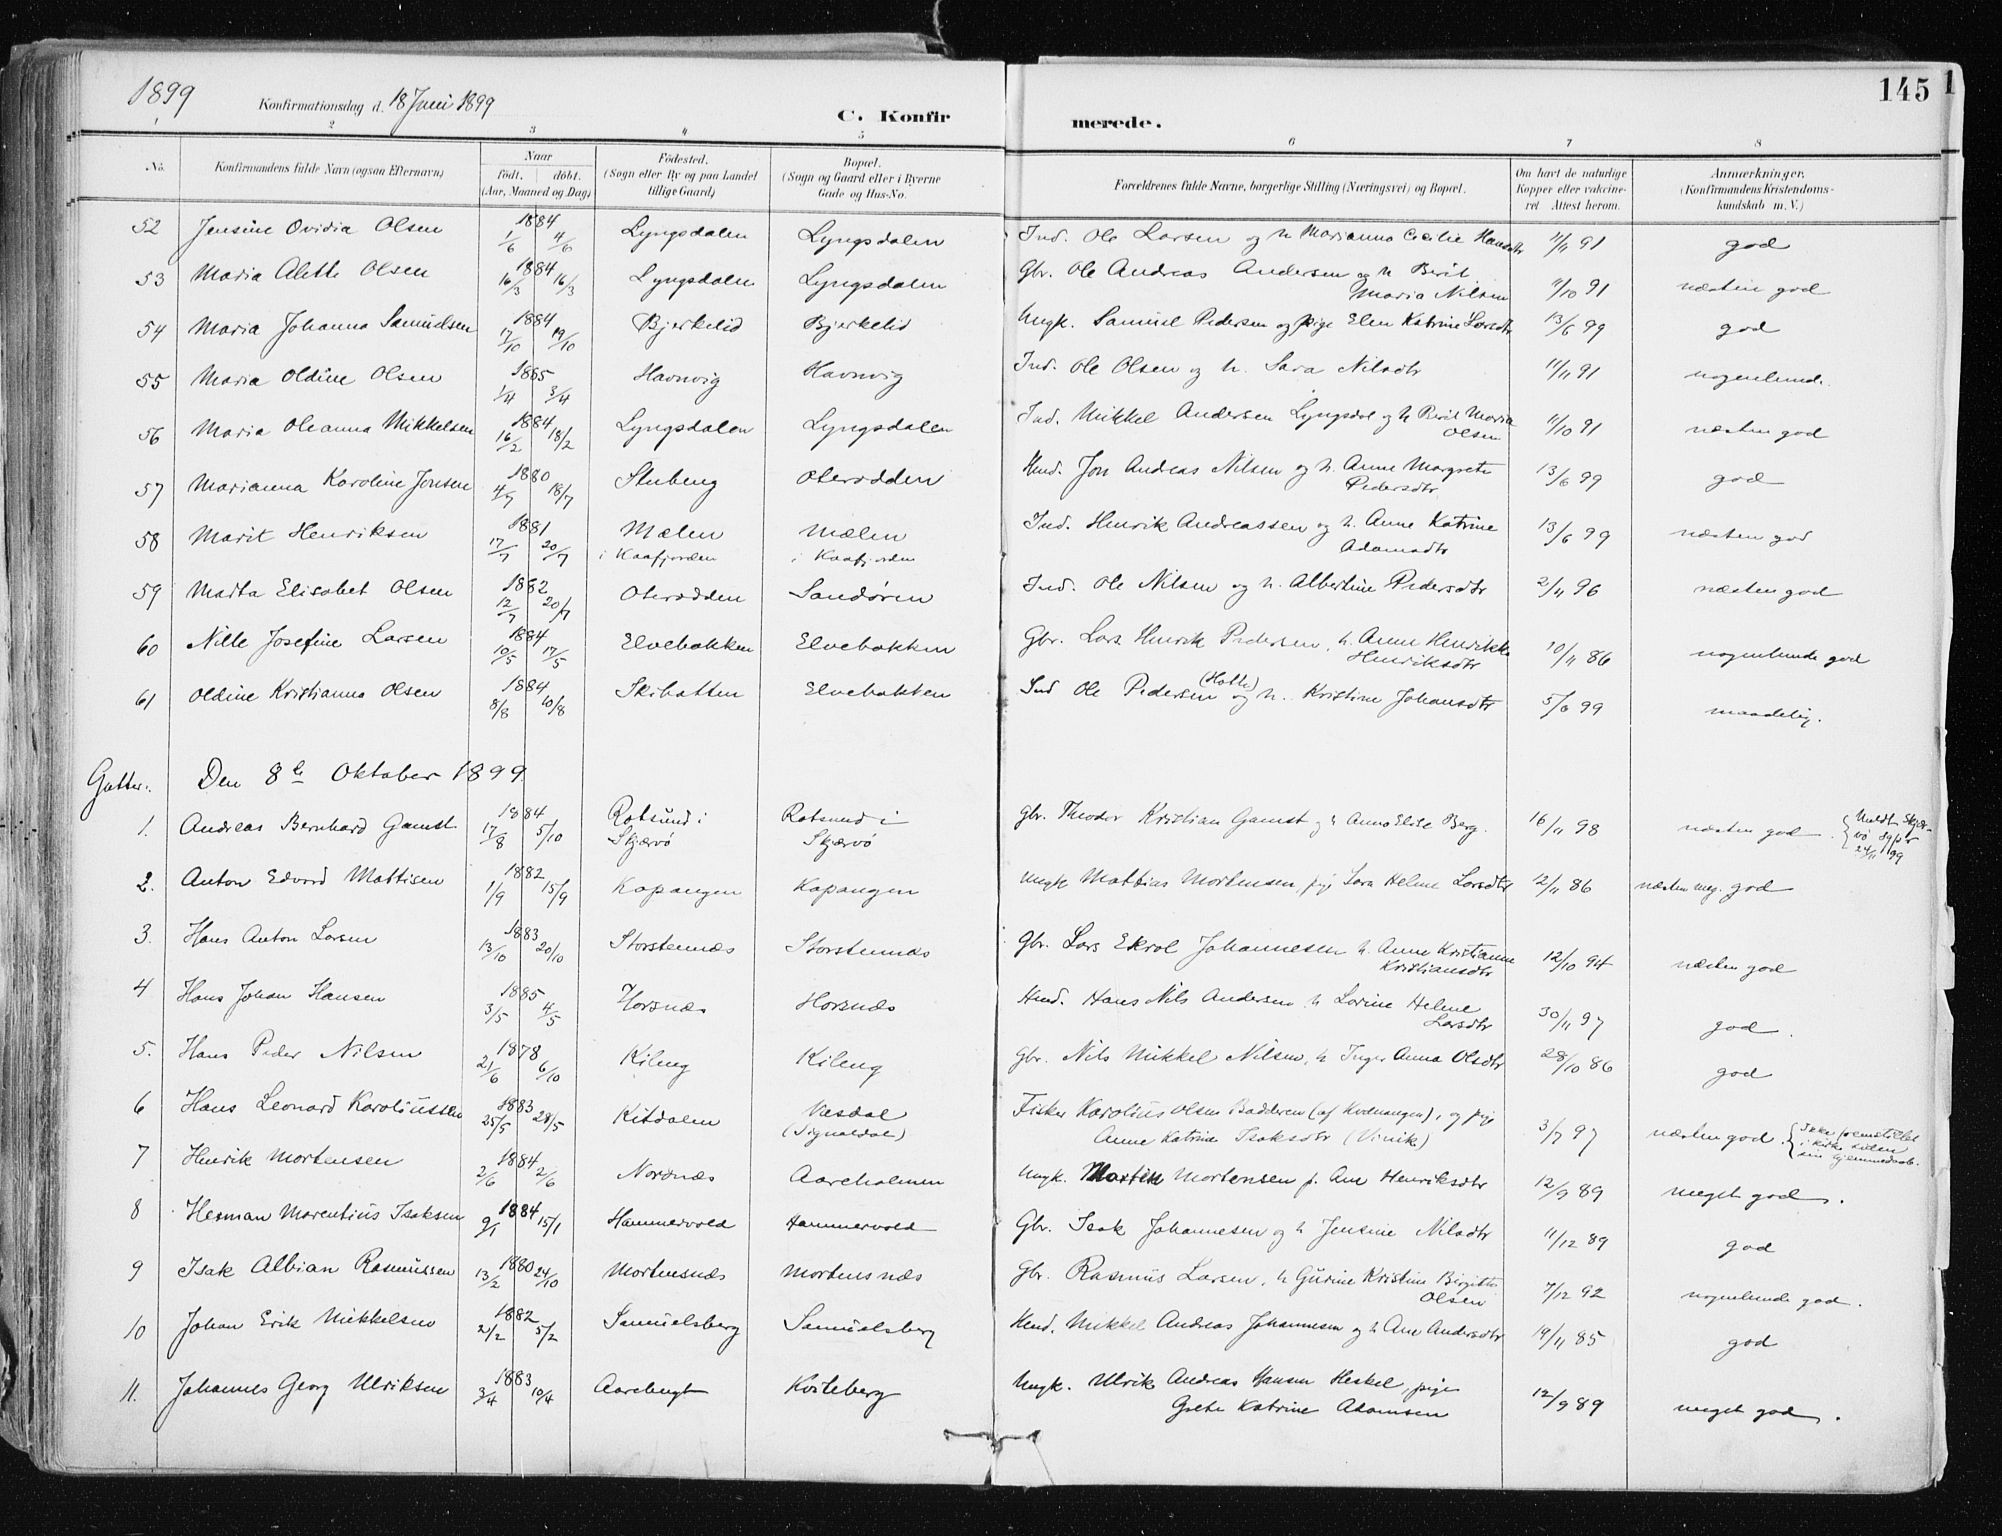 1899 Konfirmationsdag d. 18 Juni 1899 C. Konfirmerede. 145
1 2 3 4 5 6 7 8
No. Konfirmandens fulde Navn (ogsaa Efternavn) Naar født. døbt. (Aar, Maaned og Dag) Fødested. (Sogn eller By og paa Landet tillige Gaard) Bopæl. (Sogn og Gaard eller i Byerne Gade og Hus-No. Forældrenes fulde Navne, borgerlige Stilling (Næringsvei) og Bopæl. Om havt de naturlige Kopper eller vaccineret Attest herom. Anmærkninger. (Konfirmandens Kristendomskundskab m. V.)
52 Jensine Ovidia Olsen 1884 1/6 4/6 Lyngsdalen Lyngsdalen Ind. Ole Larsen og h Marianna Cecilie Hansdtr 11/11 91 god
53 Maria Alette Olsen 1884 16/3 16/3 Lyngsdalen Lyngsdalen Gbr. Ole Andreas Andersen og h Berit
Maria Nilsen 11/10 91 næsten god
54 Maria Johanna Samuelsen 1884 17/10 19/10 Bjerkelid Bjerkelid Ungk. Samuel Pedersen og pige Elen Katrine Larsdtr 13/6 99 god
55 Maria Oldine Olsen 1885 1/4 3/4 Havnvig Havnvig Ind. Ole Olsen og h. Sara Nilsdtr 11/11 91 nogenlunde.
56 Maria Oleanna Mikkelsen 1884 16/2 18/2 Lyngsdalen Lyngsdalen Ind. Mikkel Andersen Lyngsdal og h Berit Maria
Olsen 11/10 91 næsten god
57 Marianna Karoline Jonsen 1880 4/7 18/7 Stubeng Oterødden Kmd. Jon Andreas Nilsen og h. Anne Margrete
Pedersdtr 13/6 99 god
58 Marit Henriksen 1881 17/7 20/7 Mælen Mælen Ind. Henrik Andreassen og h. Anne Katrine
i Kaafjorden i Kaafjorden Adamsdtr 13/6 99 næsten god
59 Marta Elisabet Olsen 1882 12/7 20/7 Oterødden Sandøren Ind. Ole Nilsen og h. Albertine Pedersdtr 2/11 96 næsten god
60 Nille Josefine Larsen 1884 10/5 17/5 Elvebakken Elvebakken Gbr. Lars Henrik Pedersen, h. Anne Henrikke
Henriksdtr 10/11 86 nogenlunde god
61 Oldine Kristianna Olsen 1884 8/8 10/8 Skibotten Elvebakken Ind Ole Pedersen og h. Kristine Johansdtr 5/6 99 maadelig.
Gutter: Den 8de Oktober 1899
1. Andreas Bernhard Gamst 1884 17/8 5/10 Rotsund i Rotsund i gbr. Theodor Kristian Gamst og h Anna Elise Berg. 16/11 98 næsten god. Meldt Skjær-
Skjærvø Skjærvø vø Sgpr 24/11 99
2. Anton Edvard Mattisen 1882 1/9 15/9 Kapangen Kapangen Ungk Mattias Mortensen, pige Sara Helene Larsdtr 12/11 86 næsten meg. god
3. Hans Anton Larsen 1883 13/10 20/10 Storstennæs Storstennæs Gbr. Lars Ekrol Johannesen h. Anne Kristianne
Kristiansdtr 12/10 94 næsten god
4 Hans Johan Hansen 1885 3/5 4/5 Horsnæs Horsnæs Kmd. Hans Nils Andersen, h Lorine Helene
Larsdtr 30/11 97 god.
5. Hans Peder Nilsen 1878 21/6 6/10 Kileng Kileng Gbr. Nils Mikkel Nilsen, h Inger Anna Olsdtr 28/10 86 god
6 Hans Leonard Karoliussen 1883 25/5 28/5 Kitdalen Næsdal Fisker Karolius Olsen Badderen (af Kvænangen), og pige
(Signaldal) Anne Katrine Isaksdtr (Vinik) 3/7 97 næsten god. Ikke fremstillet i Kirke siden sin hjemmedaab.
7 Henrik Mortensen 1884 2/6 2/6 Nordnæs Aareholmen Ungk. Morten Mortensen p. Ane Henriksdtr 12/9 89 meget god.
8 Herman Marentius Isaksen 1884 9/1 15/1 Hammervold Hammervold Gbr. Isak Johannesen og h Jensine Nilsdtr 11/12 89 god
9 Isak Albian Rasmussen 1880 13/2 24/10 Mortensnæs Mortensnæs Gbr. Rasmus Larsen, h Gurine Kristine Birgitte
Olsen 7/12 92 nogenlunde god.
10 Johan Erik Mikkelsen 1882 2/2 5/2 Samuelsberg Samuelsberg Kmd. Mikkel Andreas Johannesen og h Ane Andersdtr 19/11 85 god
11. Johannes Georg Ulriksen 1883 3/4 10/4 Aarebugt Kviteberg Ungk. Ulrik Andreas Hansen Heskel, pige
Grete Katrine Adamsen 12/9 89 meget god.